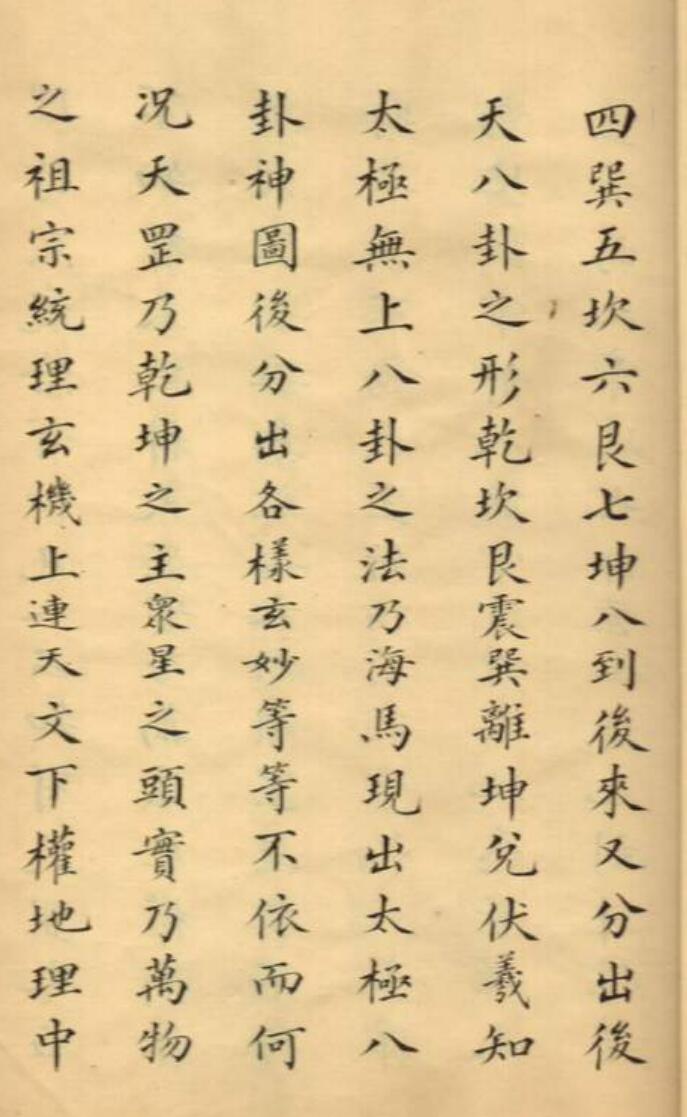 四巽五坎六艮七坤八到後來又分出後
天八卦之形乾坎艮震巽離坤兌伏羲知
太極無上八卦之法乃海馬現出太極八
卦神圖後分出各樣玄妙等等不依而何
況天罡乃乾坤之主衆星之頭實乃萬物
之祖宗統理玄機上連天文下權地理中